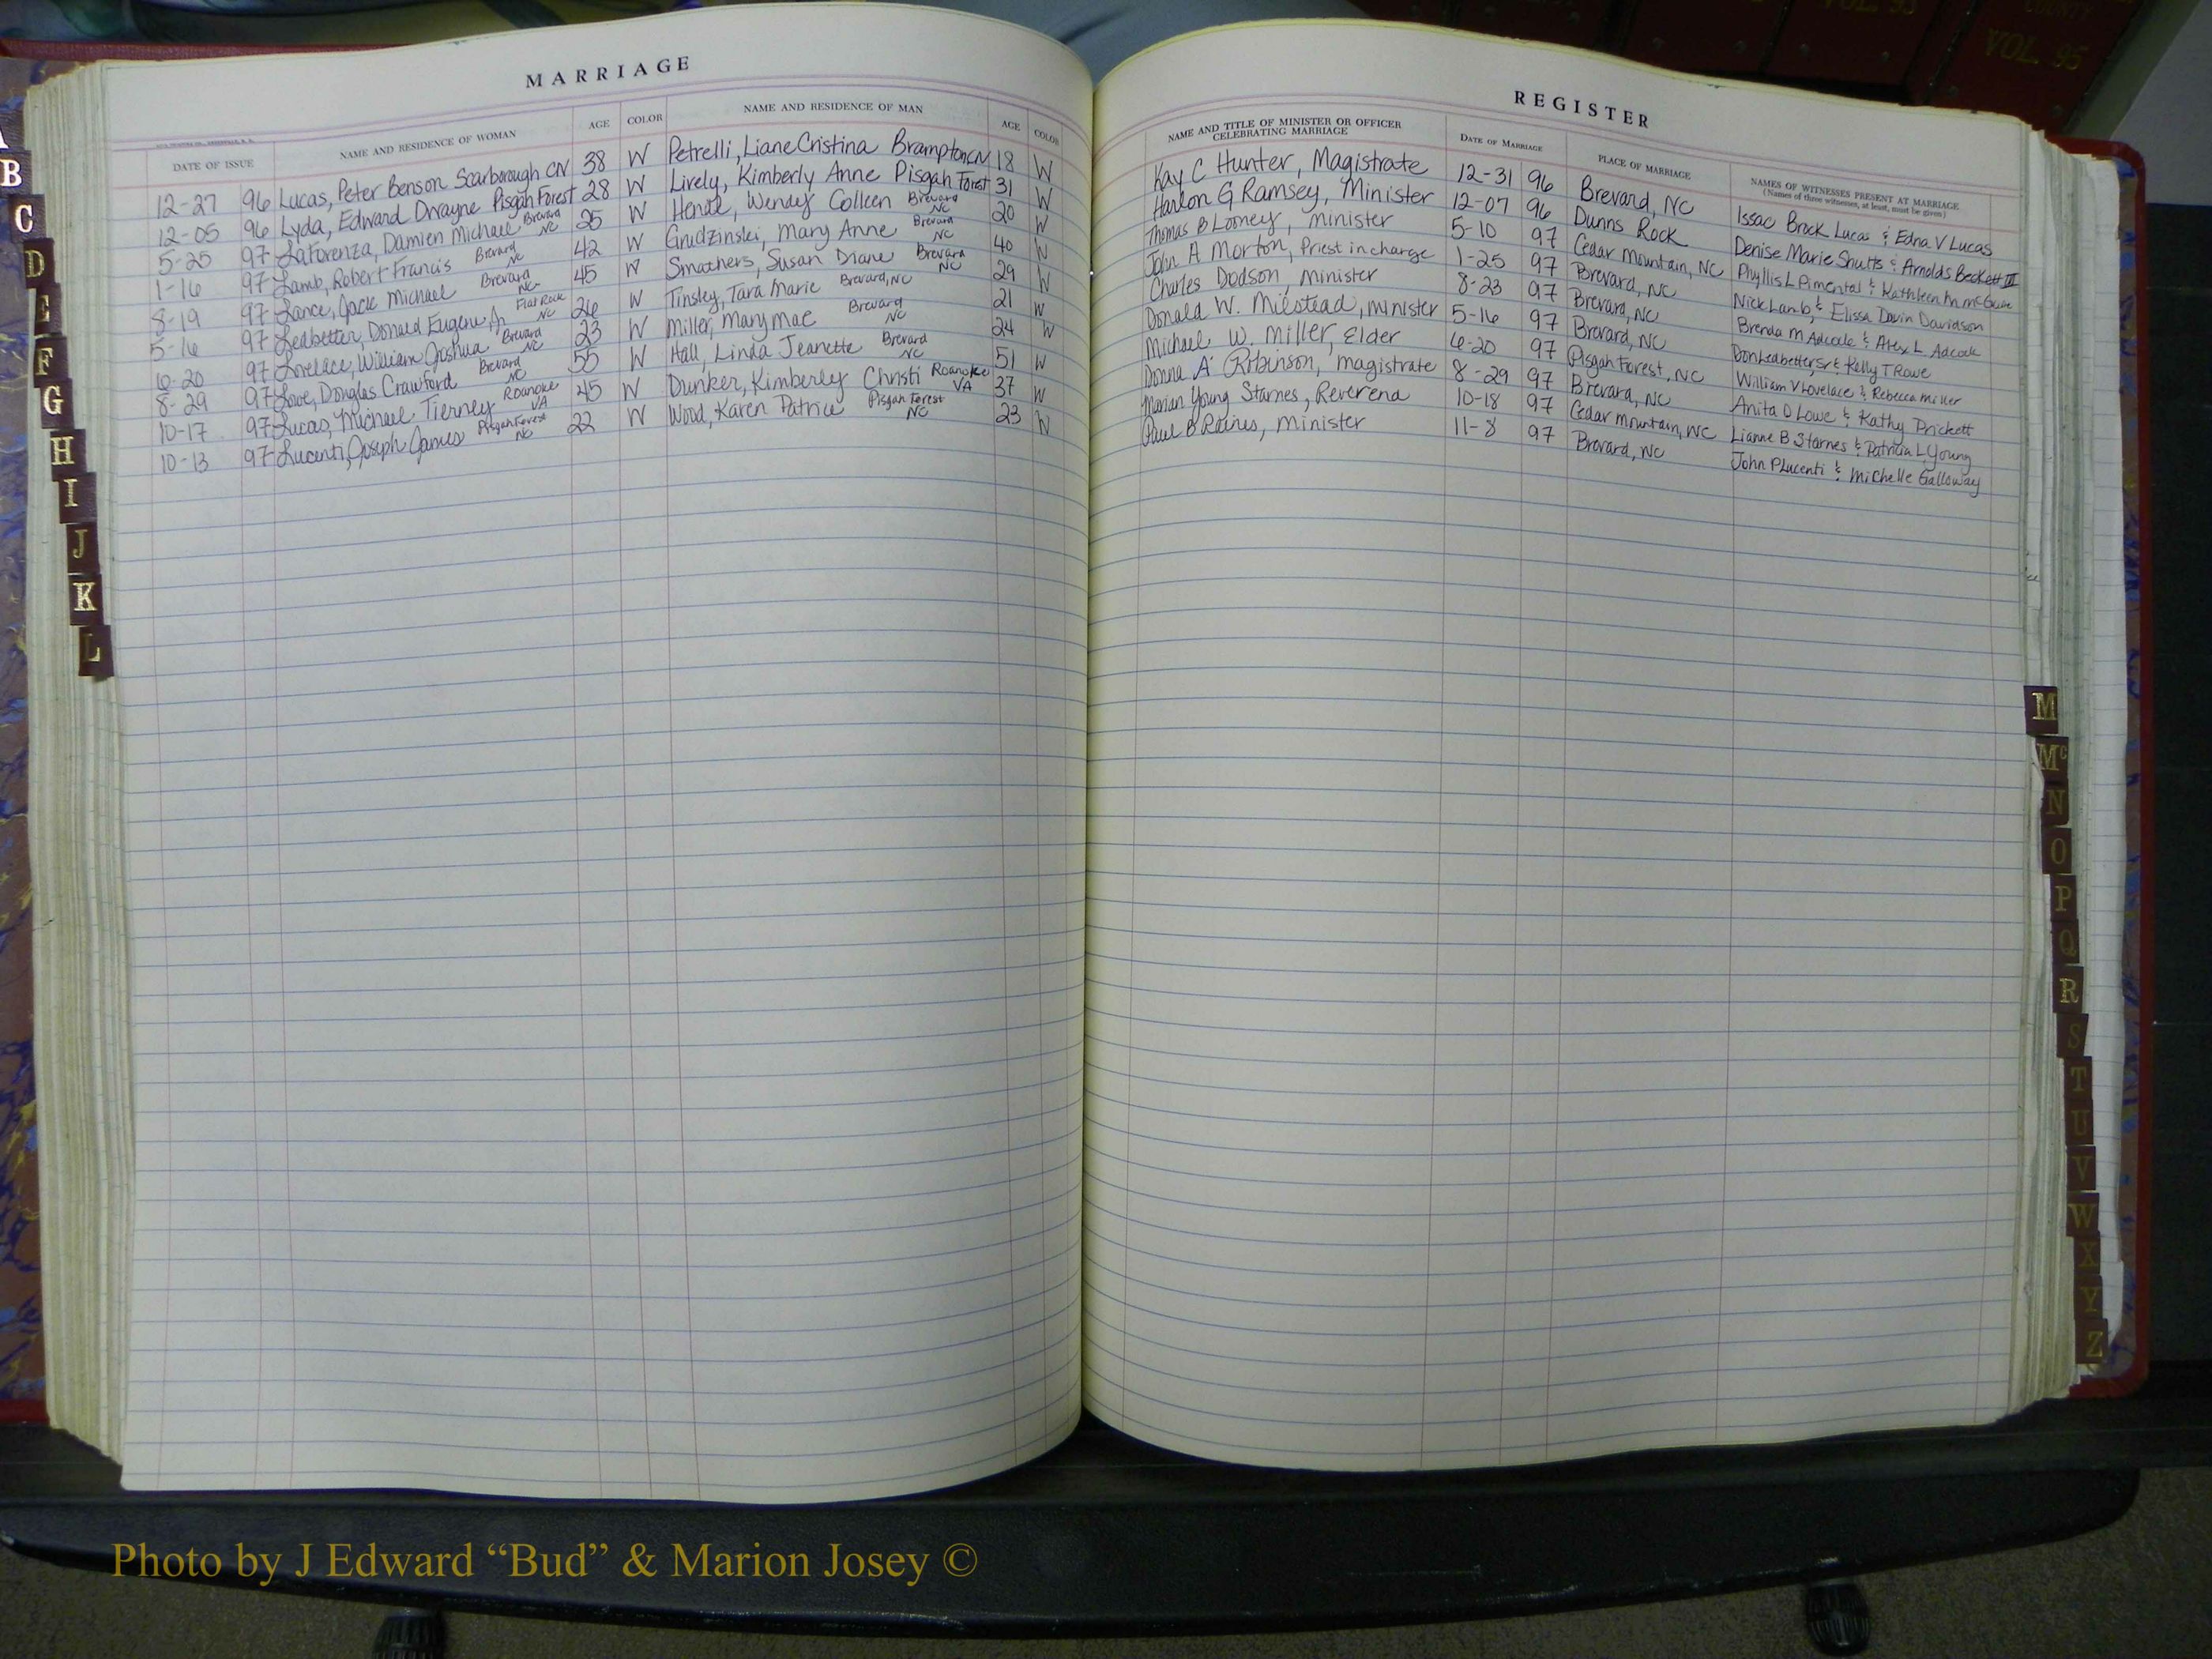 MARRIAGE
DATE OF ISSUE NAME AND RESIDENCE OF WOMAN AGE COLOR NAME AND RESIDENCE OF MAN AGE COLOR
12-27 96 Lucas, Peter Benson Scarborough CN 38 W Petrelli, Liane Cristina Brampton CN 18 W
12-05 96 Lyda, Edward Dwayne Pisgah Forest 28 W Lively, Kimberly Anne Pisgah Forest 31 W
5-25 97 LaForenza, Damien Michael Brevard NC 25 W Wendy Colleen Brevard NC 20 W
1-16 97 Lamb, Robert Francis Brevard NC 42 W Grudzinski, Mary Anne Brevard NC 40 W
8-19 97 Lance, Jack Michael Brevard NC 45 W Smathers, Susan Diane Brevard NC 29 W
5-16 97 Ledbetter, Donald Eugene Jr Flat Rock NC 26 W Tinsley, Tara Marie Brevard, NC 21 W
6-20 97 Lovelace, William Joshua Brevard NC 23 W Miller, Mary Mae Brevard NC 24 W
8-29 97 Lowe, Douglas Crawford Brevard NC 55 W Hall, Linda Jeanette Brevard NC 51 W
10-17 97 Lucas, Michael Tierney Roanoke VA 45 W Dunker, Kimberly Christi Roanoke VA 37 W
10-13 97 Lucenti, Joseph James Pisgah Forest NC 22 W Wood, Karen Patrice Pisgah Forest NC 23 W
REGISTER
NAME AND TITLE OF MINISTER OR OFFICER CELEBRATING MARRIAGE DATE OF MARRIAGE PLACE OF MARRIAGE NAMES OF WITNESSES PRESENT AT MARRIAGE
(Names of three witnesses, at least, must be given)
Kay C Hunter, Magistrate 12-31 96 Brevard, NC Issac Brock Lucas & Edna V Lucas
Harlon G Ramsey, Minister 12-07 96 Dunns Rock Denise Marie Shutts & Arnolds Beckett III
Thomas B Looney, minister 5-10 97 Cedar Mountain, NC Phyllis L Pimental & Kathleen M McGuire
John A Morton, Priest in charge 1-25 97 Brevard, NC Nick Lamb & Elissa Davin Davidson
Charles Dodson, Minister 8-23 97 Brevard, NC Brenda M Adcock & Alex L Adcock
Donald W. Milstead, minister 5-16 97 Brevard, NC Don Ledbetter Sr & Kelly T Rowe
Michael W. Miller, Elder 6-20 97 Pisgah Forest, NC William V Lovelace & Rebecca Miller
Donna A Robinson, magistrate 8-29 97 Brevard, NC Anita D Lowe & Kathy Prickett
Marian Young Starnes, Reverend 10-18 97 Cedar mountain, NC Lianne B Starnes & Patricia L Young
Paul B Raines, minister 11-8 97 Brevard, NC John P Lucenti & Michelle Galloway
B
C
D
E
F
G
H
I
J
K
L
M
Mc
N
O
P
Q
R
S
T
U
V
W
X
Y
Z
VOL. 93
COUNTY
VOL. 95
Photo by J Edward “Bud” & Marion Josey ©